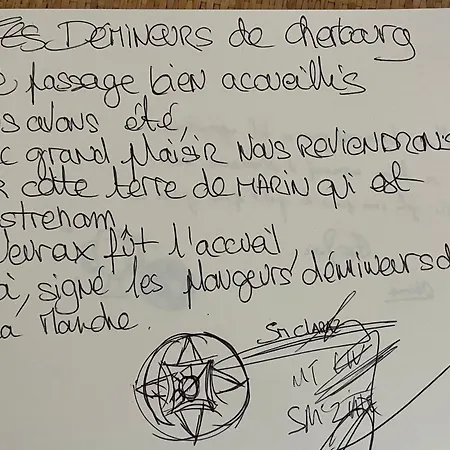 LES DÉMINEURS de Cherbourg
e passage bien accueillis
s avons été,
c grand plaisir nous REVIENDRONS
R cette terre de MARIN qui est
istreham
leureux fût l'accueil,
à, signé les plongeurs démineurs d
a Manche.
Sm
MT
SM